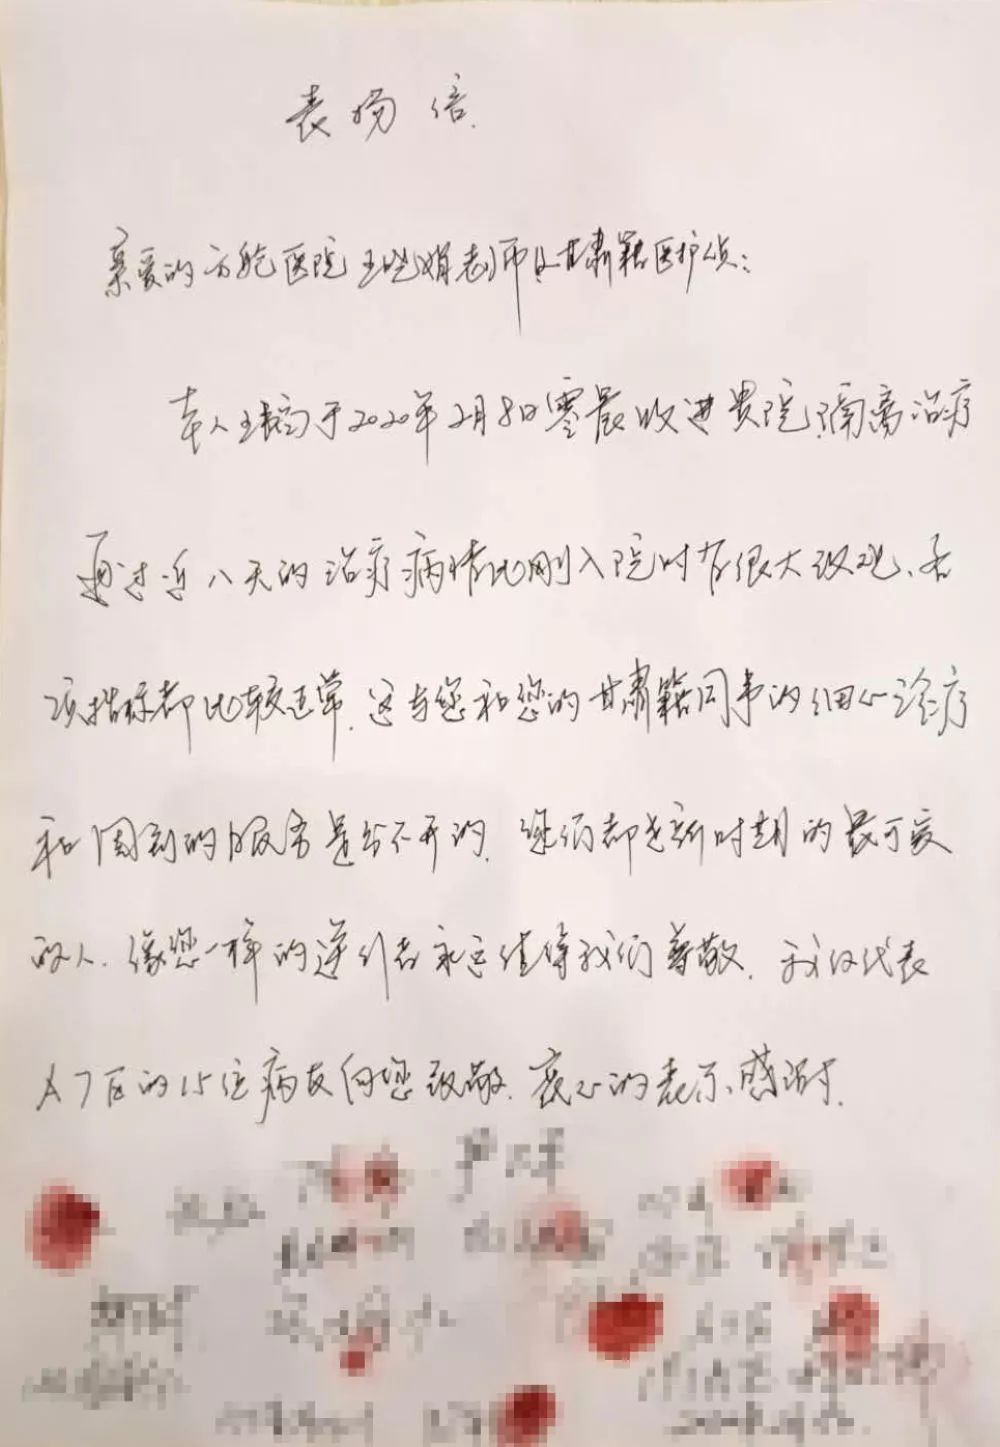 表扬信.
亲爱的方舱医院王晓娟老师及甘肃籍医护人员:
本人于2020年2月8日零晨收进贵院,隔离治疗
通过近八天的治疗病情比刚入院时有很大改观、各
项指标都比较正常.这与您和您的甘肃籍同事的细心诊疗
和周到的服务是分不开的.您们都是新时期的最可爱
的人.像您一样的逆行者永远值得我们尊敬.我仅代表
A7区的15位病友向您致敬.衷心的表示感谢.